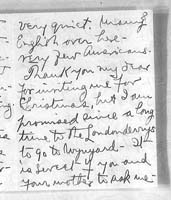 very quiet. Missing
English over here –
very few Americans.
Thank you my dear
for inviting me for
Christmas, but I am
promised since a long
time to the Londonderrys
to go to Wynyard – It
is sweet of you and
your mother to ask me –